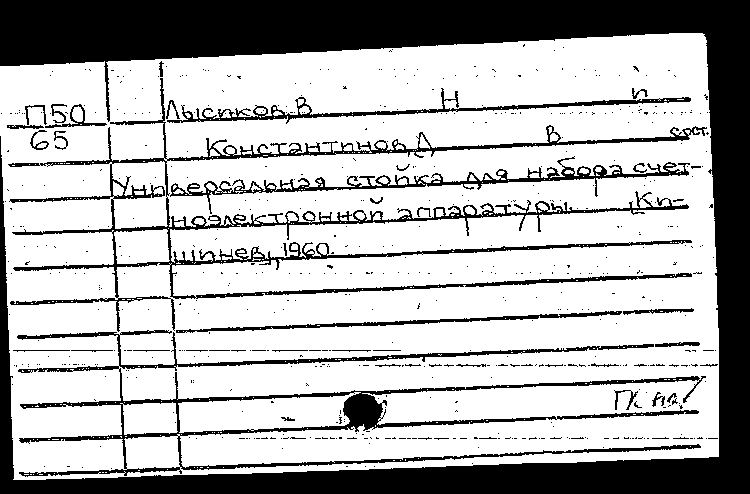 П50
65
Лысиков, В Н и
Константинов, Д В сост.
Универсальная стойка для набора счет-
ноэлектронной аппаратуры. [Ки-
шинев], 1960.